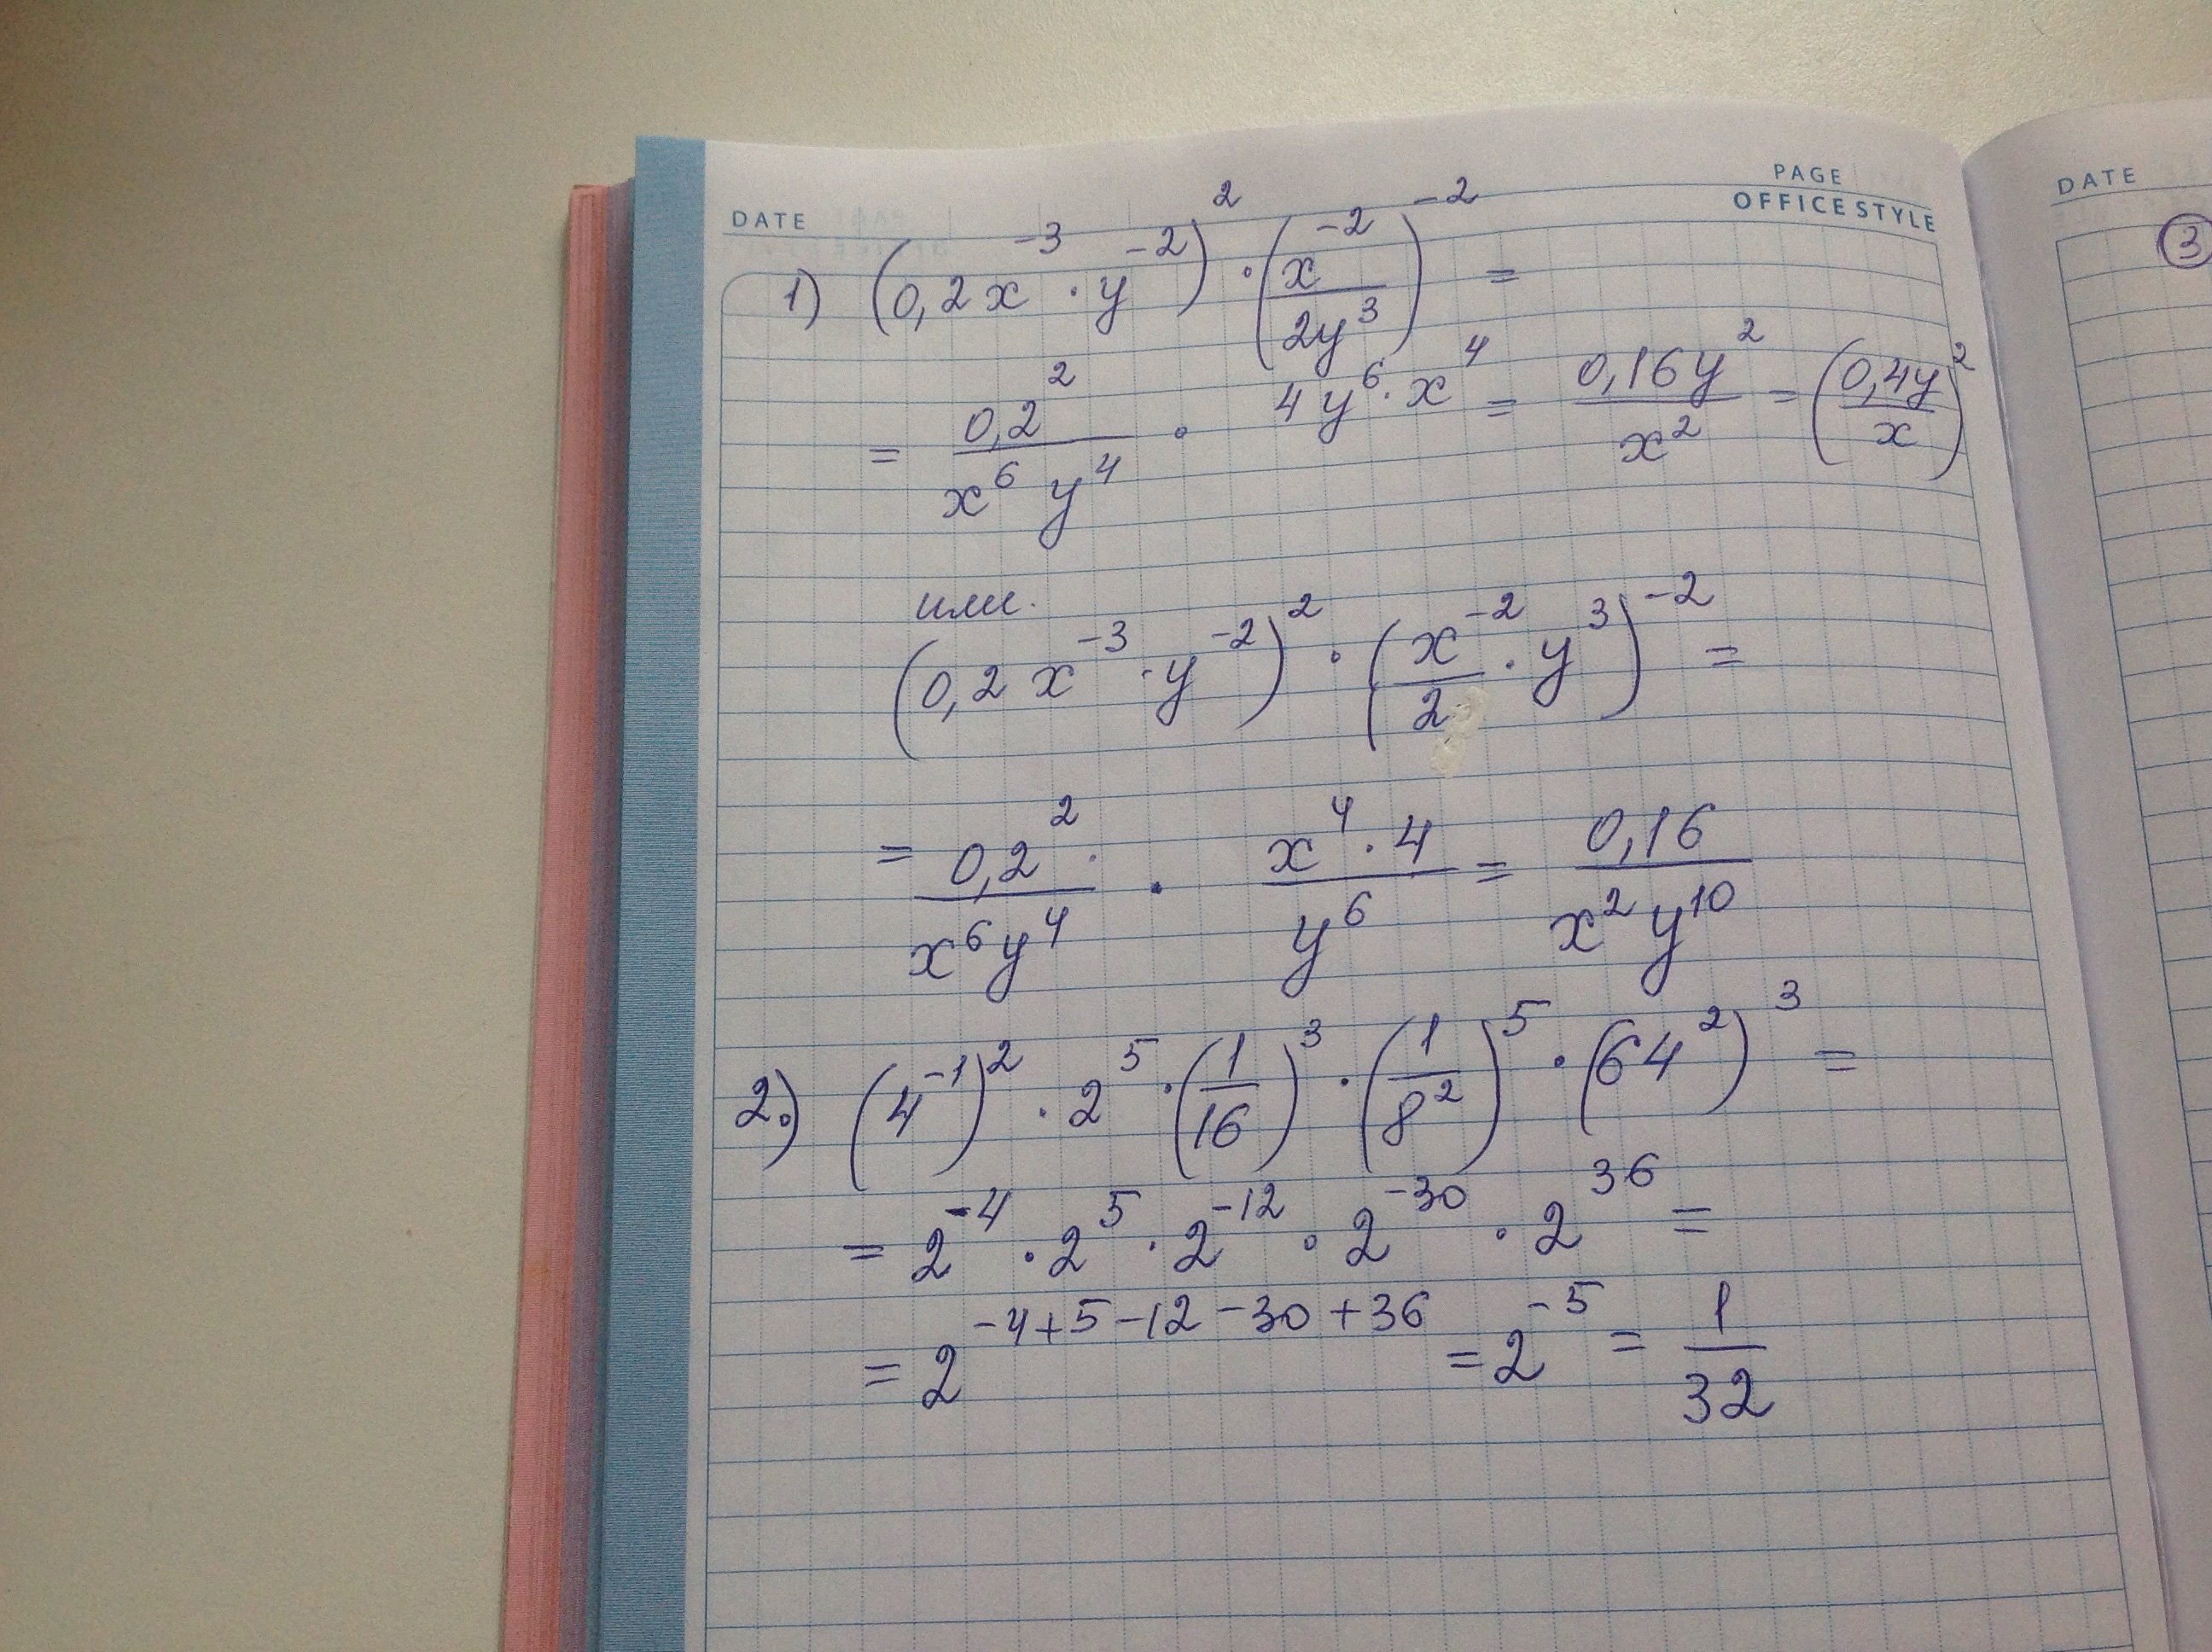 DATE
PAGE
OFFICE STYLE
DATE
3
1) (0,2x⁻³ · y⁻²)² · (x⁻² / 2y³)⁻² =
= 0,2² / x⁶ y⁴ · 4y⁶ · x⁴ = 0,16y² / x² = (0,4y / x)²
или.
(0,2x⁻³ · y⁻²)² · (x⁻² / 2 · y³)⁻² =
= 0,2² / x⁶y⁴ · x⁴ · 4 / y⁶ = 0,16 / x² y¹⁰
2.) (4⁻¹)² · 2⁵ · (1 / 16)³ · (1 / 8²)⁵ · (64²)³ =
= 2⁻⁴ · 2⁵ · 2⁻¹² · 2⁻³⁰ · 2³⁶ =
= 2⁻⁴⁺⁵⁻¹²⁻³⁰⁺³⁶ = 2⁻⁵ = 1 / 32